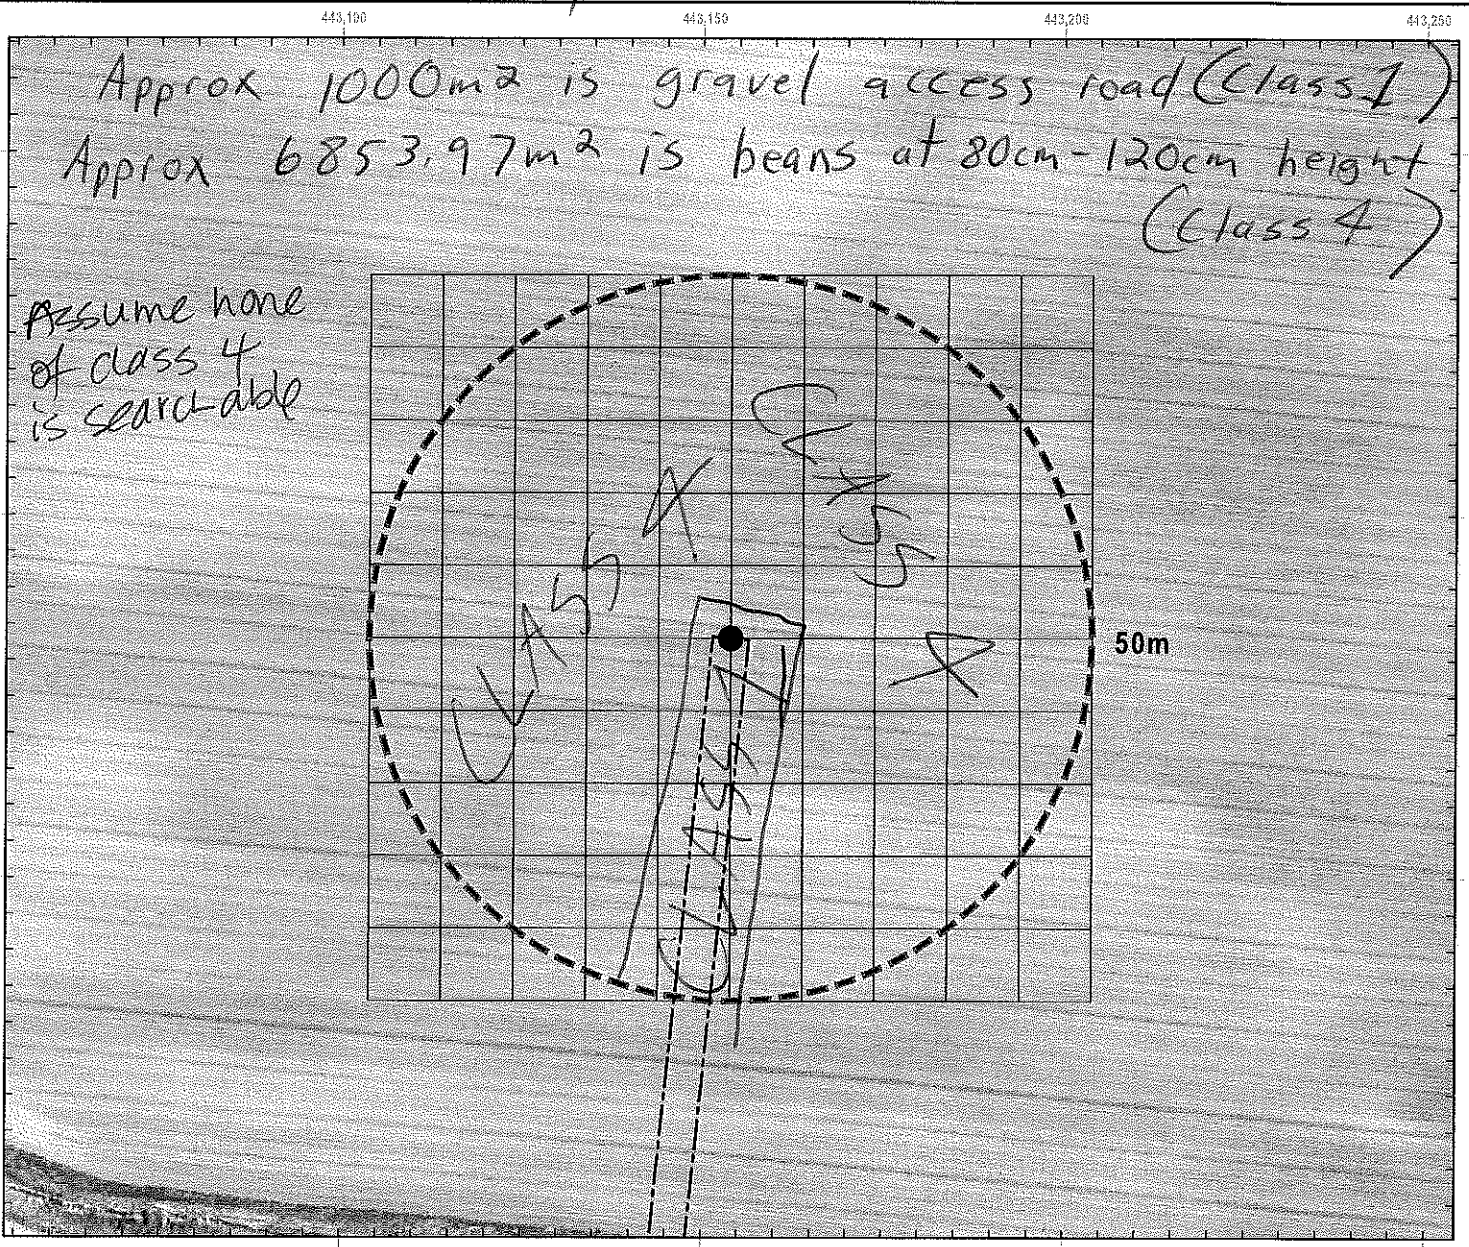 443,100 443,150 443,200 443,250
Approx 1000m2 is gravel access road (Class 1)
Approx 6853.97m2 is beans at 80cm-120cm height
(Class 4)
Assume none
of class 4
is searchable
CLASS 4
CLASS 4
50m
CLASS 1